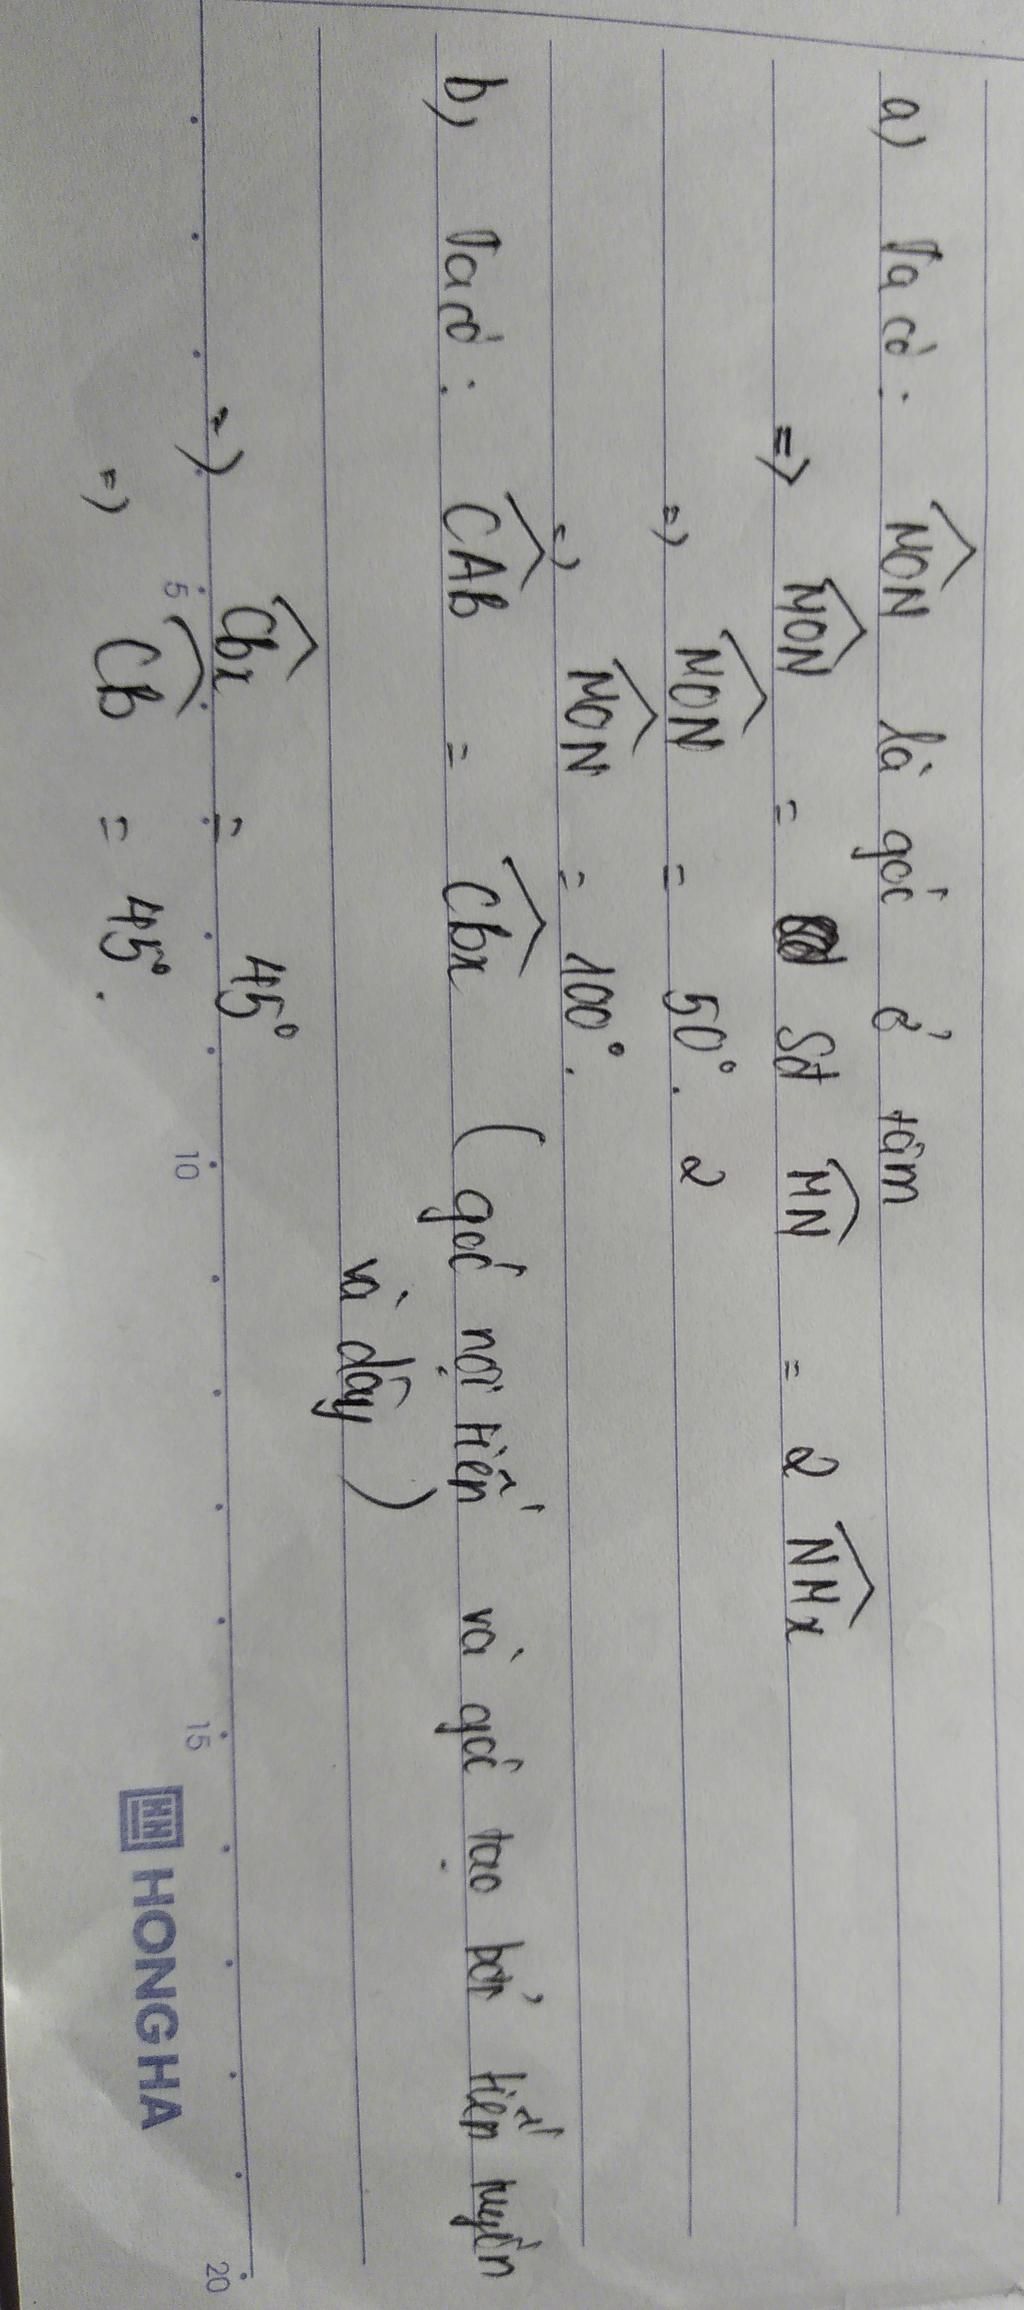 a) Ta có: MON là góc ở tâm
=> MON = Sđ MN = 2 NMx
=> MON = 50°. 2
=> MON = 100°.
b) Ta có: CAB = CBx (góc nội tiếp và góc tạo bởi tiếp tuyến
và dây)
=> CBx = 45°
=> CB = 45°.
5 10 15 20
HONG HA